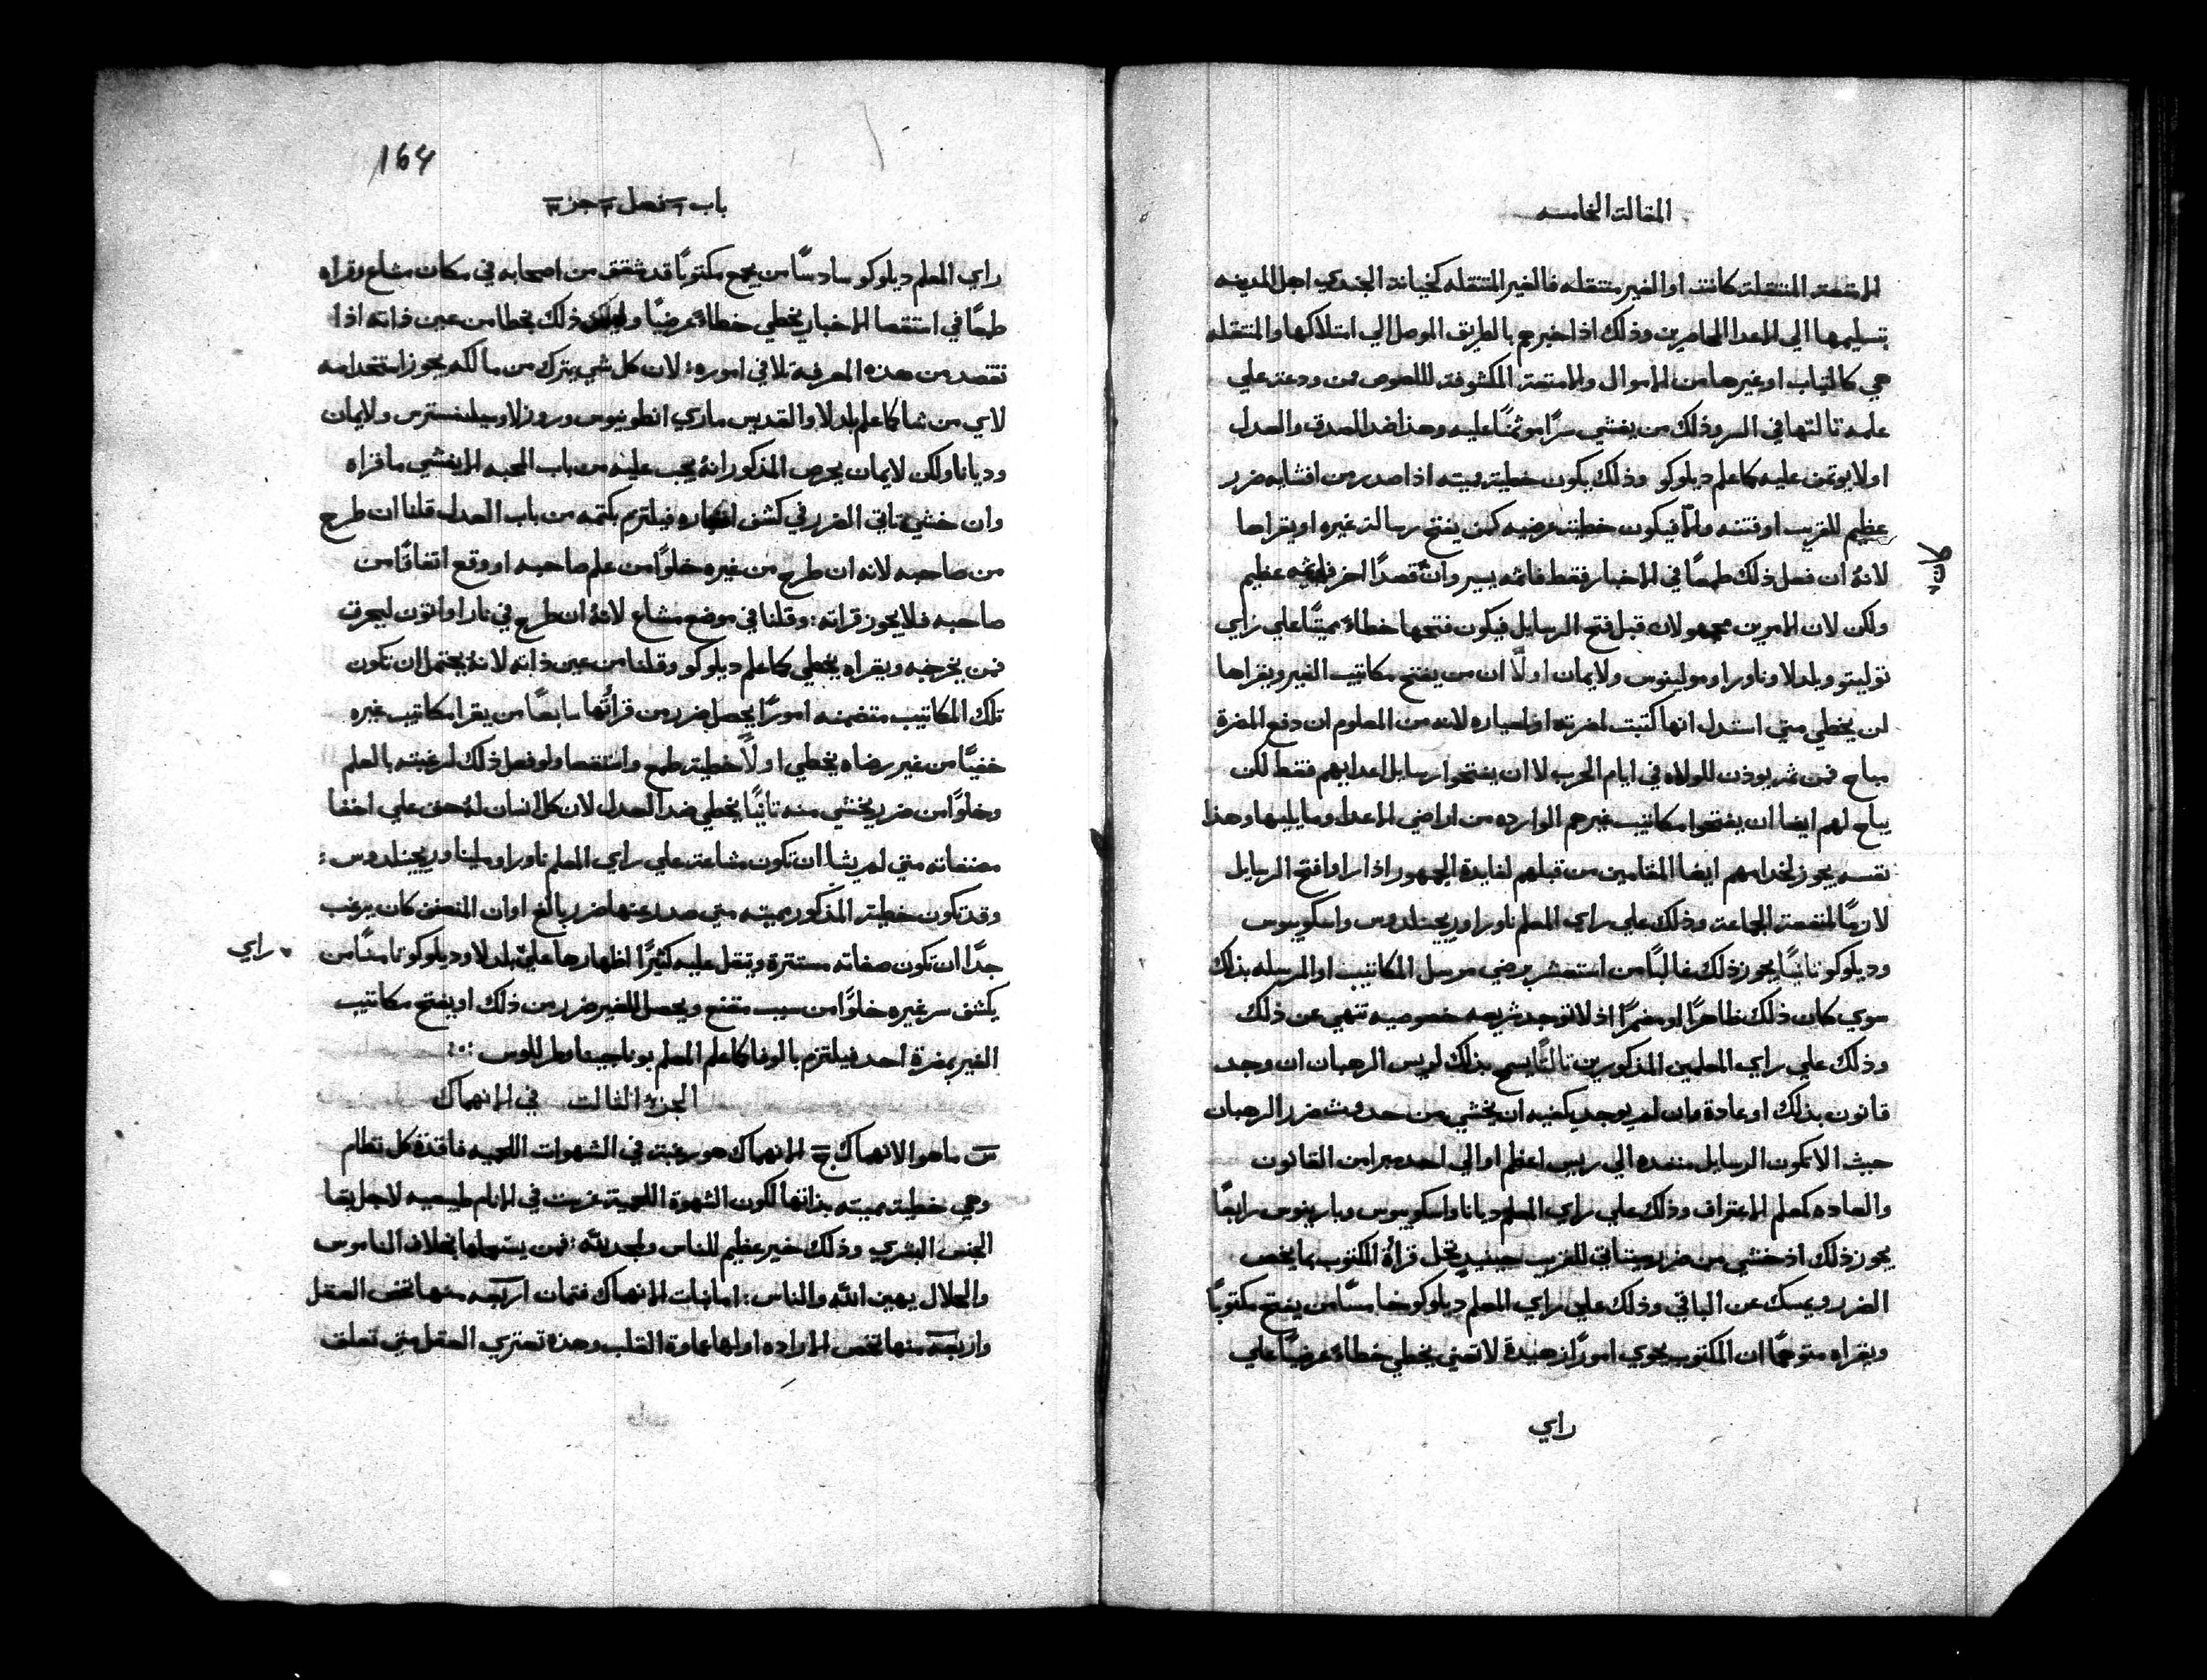 المقالة الخامسه
الامتعة المنتقلة كانت او الغير منتقله فالغير المنتقله كخيانة الجندي اهل المدينه
بتسليمها الي الاعدا المحاصرين وذلك اذا اخبرهم بالطريق الموصل الي امتلاكها والمنتقله
هي كالثياب او غيرها من الاموال والامتعة المكشوفة للصوص ممن ودعت علي
علمه ثالثها في السر وذلك من يفشي سرًا موتمنًا عليه وهذا ضد الصدق والعدل
اولا يوتمن عليه كما علم ديلوكو وذلك يكون خطية مميته اذا صدر من افشايه ضرر
عظيم للقريب او فتنه والا فيكون خطية عرضيه كمن يفتح رسالة غيره او يقراها
لانهُ ان فعل ذلك طمعًا في الاخبار فقط فاثمه يسير وان قصدًا اخر فاثمه عظيم
كان
ولكن لان الامرين مجهولان قبل فتح الرسايل فيكون فتحها خطاءً مميتًا علي راي
توليتو وبلدلا وناورا ومولينوس ولايمان اولًا ان من يفتح مكاتيب الغير ويقراها
لن يخطي متي استدل انها كتبت لضرته او لعياره لانه من المعلوم ان دفع المضرة
مباح فمن ثم يوذن للولاه في ايام الحرب لا ان يفتحوا رسايل اعدايهم فقط لكن
يباح لهم ايضا ان يفتحوا مكاتيب غيرهم الوارده من اراضي الاعدا وما يليها وهذا
نفسه يجوز لخدامهم ايضا المقامين من قبلهم لفايدة الجمهور اذا راوا فتح الرسايل
لازمًا لمنفعة الجماعة وذلك علي راي المعلم ناورا وريجينلدوس واسكوبيوس
وديلوكو ثانيًا يجوز ذلك غالبًا من استشعر برضي مرسل المكاتيب او المرسله بذلك
سوي كان ذلك ظاهرًا او مضمرًا اذ لا توجد شريعه خصوصيه تنهي عن ذلك
وذلك علي راي المعلمين المذكورين ثالثًا يسمح بذلك لريس الرهبان ان وجد
قانون بذلك او عادة وان لم يوجد يكفيه ان يخشي من حدوث ضرر الرهبان
حيث الا تكون الرسايل منفده الي ريس اعظم او الي احد مبرا من القانون
والعاده كمعلم الاعتراف وذلك علي راي المعلم ديانا واسكوبيوس وبارينوس رابعًا
يجوز ذلك اذ خشي من ضرر سياتي للقريب حينيذ تحل قراة المكتوب بما يخص
الضرر ويمسك عن الباقي وذلك علي راي المعلم ديلوكو خامسًا من يفتح مكتوبًا
ويقراه متوهمًا ان المكتوب يحوي امورًا زهيدة لا تعني يخطي خطاءً عرضيًا علي
راي
164
باب ٦ فصل ٣ جزء ٣
راي المعلم ديلوكو سادسًا من يجمع مكتوبًا قد شقق من اصحابه في مكان مشاع وقراه
طمعًا في استقصا الاخبار يخطي خطاءً عرضيًا وليكن ذلك بخطا من عين ذاته اذا
نقصد من هذه المعرفة لا في اموره: لان كل شي يترك من مالكه يجوز استخدامه
لاي من شا كما علم بلدلا والقديس ماري انطونيوس وروزلا وسيلفسترس ولايمان
وديانا ولكن لايمان يحرص المذكور انهُ يجب عليه من باب المحبه الا يفشي ما قراه
وان خشي تاتي الضرر في كشف اخباره فيلتزم بكتمه من باب العدل قلنا ان طرح
من صاحبه لانه ان طرح من غيره خلوًا من علم صاحبه او وقع اتفاقًا من
صاحبه فلا يجوز قراته: وقلنا في موضع مشاع لانهُ ان طرح في نار او اتون ليحرق
فمن يخرجه ويقراه يخطي كما علم ديلوكو وقلنا من عين ذاته لانهُ يحتمل ان تكون
تلك المكاتيب متضمنه امورًا يحصل ضرر من قراتُها سابعًا من يقرا مكاتيب غيره
خفيًا من غير رضاه يخطي اولًا خطية طمع واستقصا ولو فعل ذلك لرغبته بالعلم
وخلوًا من ضرر يخشي منه ثانيًا يخطي ضد العدل لان كل انسان لهُ حق علي اخفا
مصنفاته متي لم يشا ان تكون مشاعة علي راي المعلم ناورا وملينا وريجينلدوس:
وقد تكون خطية المذكور مميته متي صدر عنها ضرر بالغ او ان المصنف كان يرغب
جدًا ان تكون صفاته مستترة ويثقل عليه كثيرًا اظهارها علي بلدلا وديلوكو ثامنًا من
راي
يكشف سر غيره خلوًا من سبب مقنع ويحصل للغير ضرر من ذلك او يفتح مكاتيب
الغير بمضرة احد فيلتزم بالوفا كما علم المعلم بوناجينا وطرللوس
الجزء الثالث في الانهماك
س ما هو الانهماك ج الانهماك هو رغبة في الشهوات اللحميه فاقدة كل نظام
وهي خطية مميته بذاتها لكون الشهوة اللحمية غرست في الانام طبيعيه لاجل بقا
الجنس البشري وذلك خير عظيم للناس ولمجد الله: فمن يستعملها بخلاف الناموس
والحلال يهين الله والناس: اما بنات الانهماك فثمان اربعه منها تخص العقل
واربعة منها تخص الاراده اولها عماوة القلب وهذه تعتري العقل متي تعلق